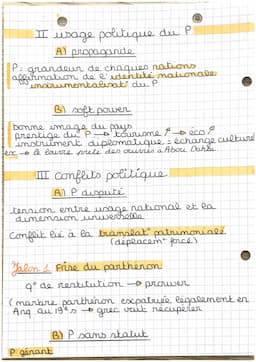 II usage politique du P
A) propagande
P : grandeur de chaques nations
affirmation de l'identité nationale
instrumentalisat° du P
B) soft power
bonne image du pays
prestige du P → tourisme ↗ → eco ↗
instrument diplomatique = échange culturel
ex → le louvre prete des œuvres à Abou Dahbi
III conflits politique
A) P disputé
tension entre usage national et la
dimension universelle
Conflit lié à la translat° patrimoniale
(déplacem° forcé)
Jalon 1 Frise du parthénon
q° de restitution → prouver
(marbre parthénon expatriée légalement en
Ang au 19e s → grec veut récupérer
B) P sans statut
P gênant